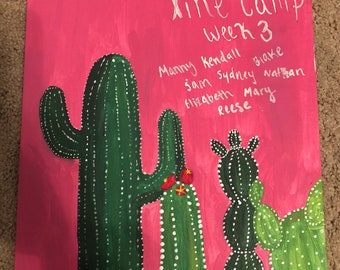 Vine Camp
Week 3
Manny Kendall Blake
Sam Sydney Nathan
Elizabeth Mary
Reese